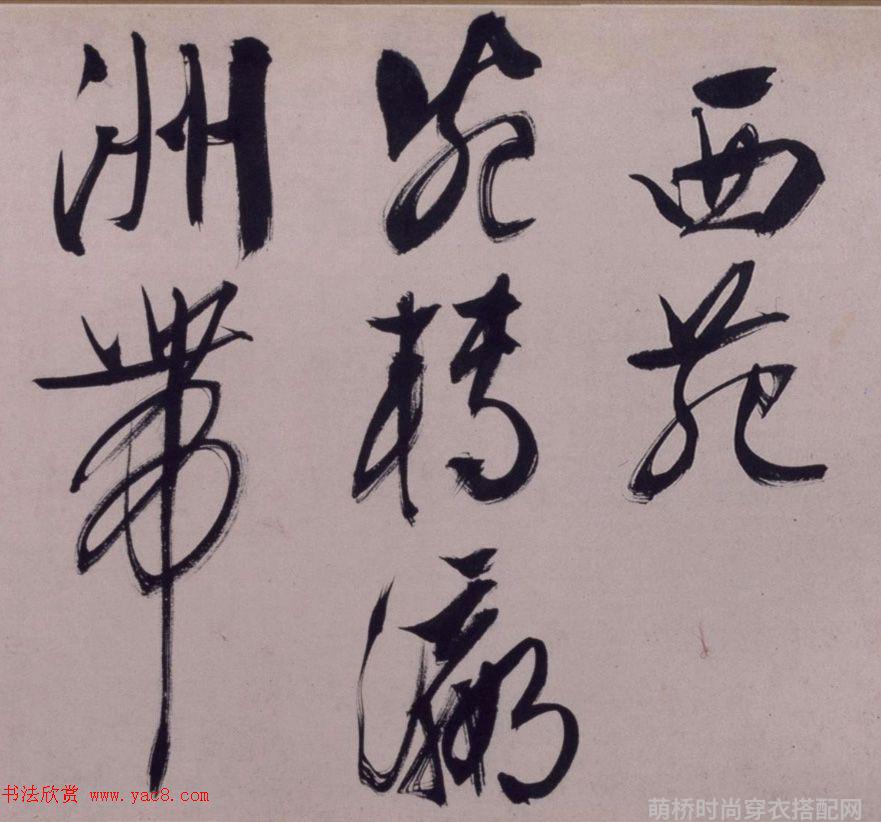 西苑
宛轉瀛
洲帶
书法欣赏 www.yac8.com
萌桥时尚穿衣搭配网